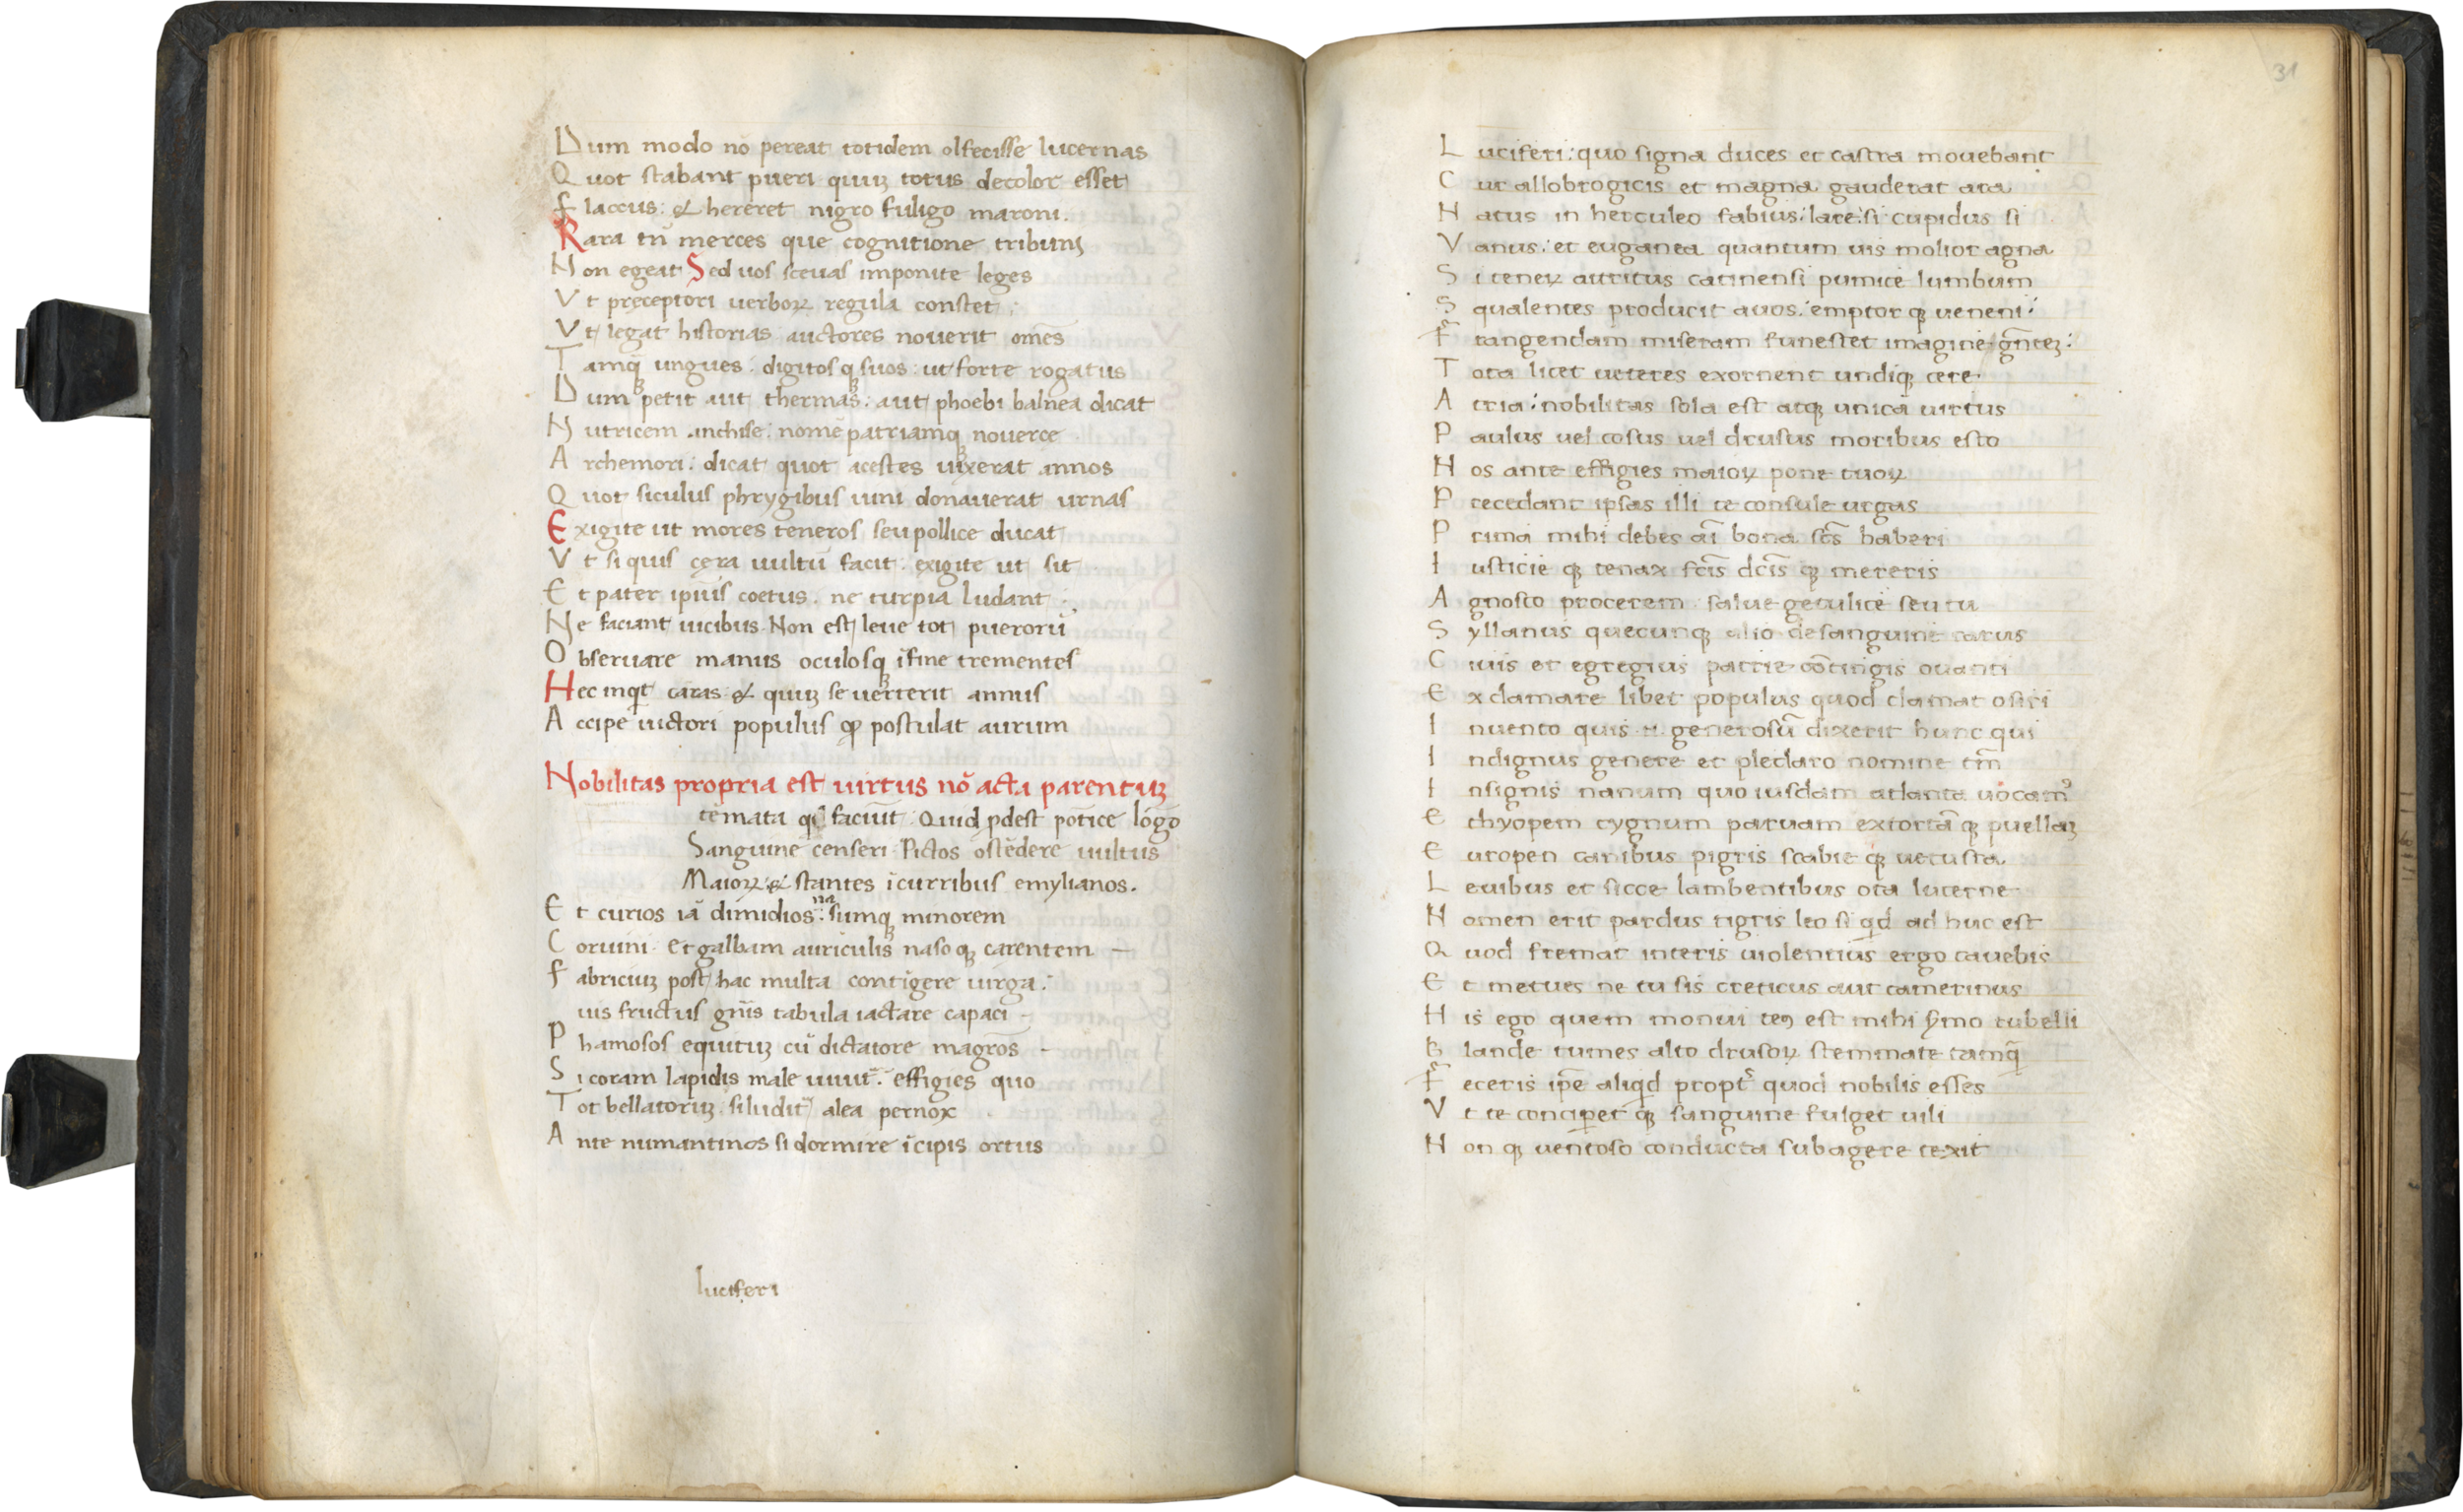 Dum modo nō pereat totidem olfecisse lucernas
Quot stabant pueri quuȝ totus decolor esset
Flaccus: & hereret nigro fuligo maroni.
Rara tn̄ merces que cognitione tribuni
Non egeat Sed uos sceuas imponite leges
Vt pręceptori uerboꝝ regula constet :
Vt legat historias auctores nouerit om̄es
Tamq̄ ungues : digitosqꝫ suos : ut forte rogatus
Dum petit aut thermas : aut phoebi balnea dicat
Nutricem anchise : nomē patriamqꝫ nouerce
Archemori : dicat quot acestes uixerat annos
Quot siculus phrygibus uini donauerat urnas
Exigite ut mores teneros seu pollice ducat
Vt si quis cęra uultū facit . exigite ut sit
Et pater ipius coetus . ne turpia ludant :
Ne faciant uicibus . Non est leue tot puerorū
Obseruare manus oculosqꝫ ĩ fine trementes
Hec inqt curas & quuȝ se uerterit annus
Accipe uictori populus qꝫ postulat aurum
Nobilitas propria est uirtus nō acta parentuȝ
temata qd faciūt : Quid ꝓdest pōtice lōgo
Sanguine censeri . Pictos ostēdere uultus
Maioꝝ : & stantes ĩ curribus emylianos .
Et curios iā dimidios : sumqꝫ minorem
Coruini . et galbam auriculis nasoqꝫ carentem —
Fabriciuȝ post hac multa contigere uirga :
uis fructus gn̄is tabula iactare capaci -
Phamosos equituȝ cū dictatore magrōs -
Si coram lapidis male uiuit . effigies quo
Tot bellatoruȝ . si ludit alea pernox
Ante numantinos si dormire ĩcipis ortus
luciferi
31
Luciferi : quo signa duces et castra mouebant
Cur allobrogicis et magna gauderat ara
Natus in herculeo fabius : lare : si cupidus si
Vanus : et euganea quantum uis molior agna
Si teneꝝ attritus catinensi pumice lumbum
Squalentes producit auos : emptor qꝫ ueneni :
Frangendam miseram funestet imagine gn̄teȝ :
Tota licet ueteres exornent undiqꝫ cere .
Atria : nobilitas sola est atqꝫ unica uirtus
Paulus uel cosus uel drusus moribus esto
Hos ante effigies maioꝝ pone tuoꝝ
Precedant ipsas illi te consule urgas
Prima mihi debes aī bona . scs̄ haberi
Iusticie qꝫ tenax fcīs dcīs qꝫ mereris
Agnosco procerem . salue getulice seu tu
Syllanus quecunqꝫ alio de sanguine ratus
Ciuis et egregius patrie cōtingis ouanti
Exclamare libet populus quod clamat osiri
Inuento quis .n. generosū dixerit hunc qui
Indignus genere et pleclaro nomine tm̄
Insignis nanum quoiusdam atlanta uocamꝰ
Ethyopem cygnum paruam extortā qꝫ puellaȝ
Europen canibus pigris scabie qꝫ uetusta
Leuibus et sicce lambentibus ora lucerne
Nomen erit pardus tigris leo si qd ad huc est
Quod fremat interis uiolentius ergo cauebis
Et metues ne tu sis creticus aut camerinus
His ego quem monui est mihi ẛmo tubelli
Blande tumes alto drusoꝝ stemmate tamq̄
Feceris ipe aliqd propt quod nobilis esses
Vt te conciperet q̄ sanguine fulget uili
Non qꝫ uentoso conducta sub agere texit